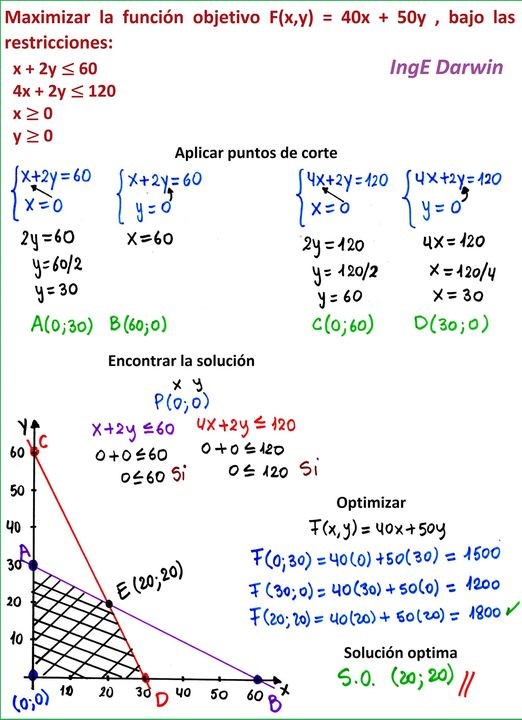 Maximizar la función objetivo F(x,y) = 40x + 50y , bajo las
restricciones:
x + 2y ≤ 60
4x + 2y ≤ 120
x ≥ 0
y ≥ 0
IngE Darwin
Aplicar puntos de corte
x+2y=60
x=0
2y=60
y=60/2
y=30
A(0;30)
x+2y=60
y=0
x=60
B(60;0)
4x+2y=120
x=0
2y=120
y=120/2
y=60
C(0;60)
4x+2y=120
y=0
4x=120
x=120/4
x=30
D(30;0)
Encontrar la solución
x y
P(0;0)
x+2y≤60
0+0≤60
0≤60 Si
4x+2y≤120
0+0≤120
0≤120 Si
y
60 C
50
40
A
30
20
10
E(20;20)
(0;0)
10 20 30 40 50 60 x
D
B
Optimizar
F(x,y)=40x+50y
F(0;30)=40(0)+50(30)=1500
F(30;0)=40(30)+50(0)=1200
F(20;20)=40(20)+50(20)=1800 ✓
Solución optima
S.O. (20;20) //